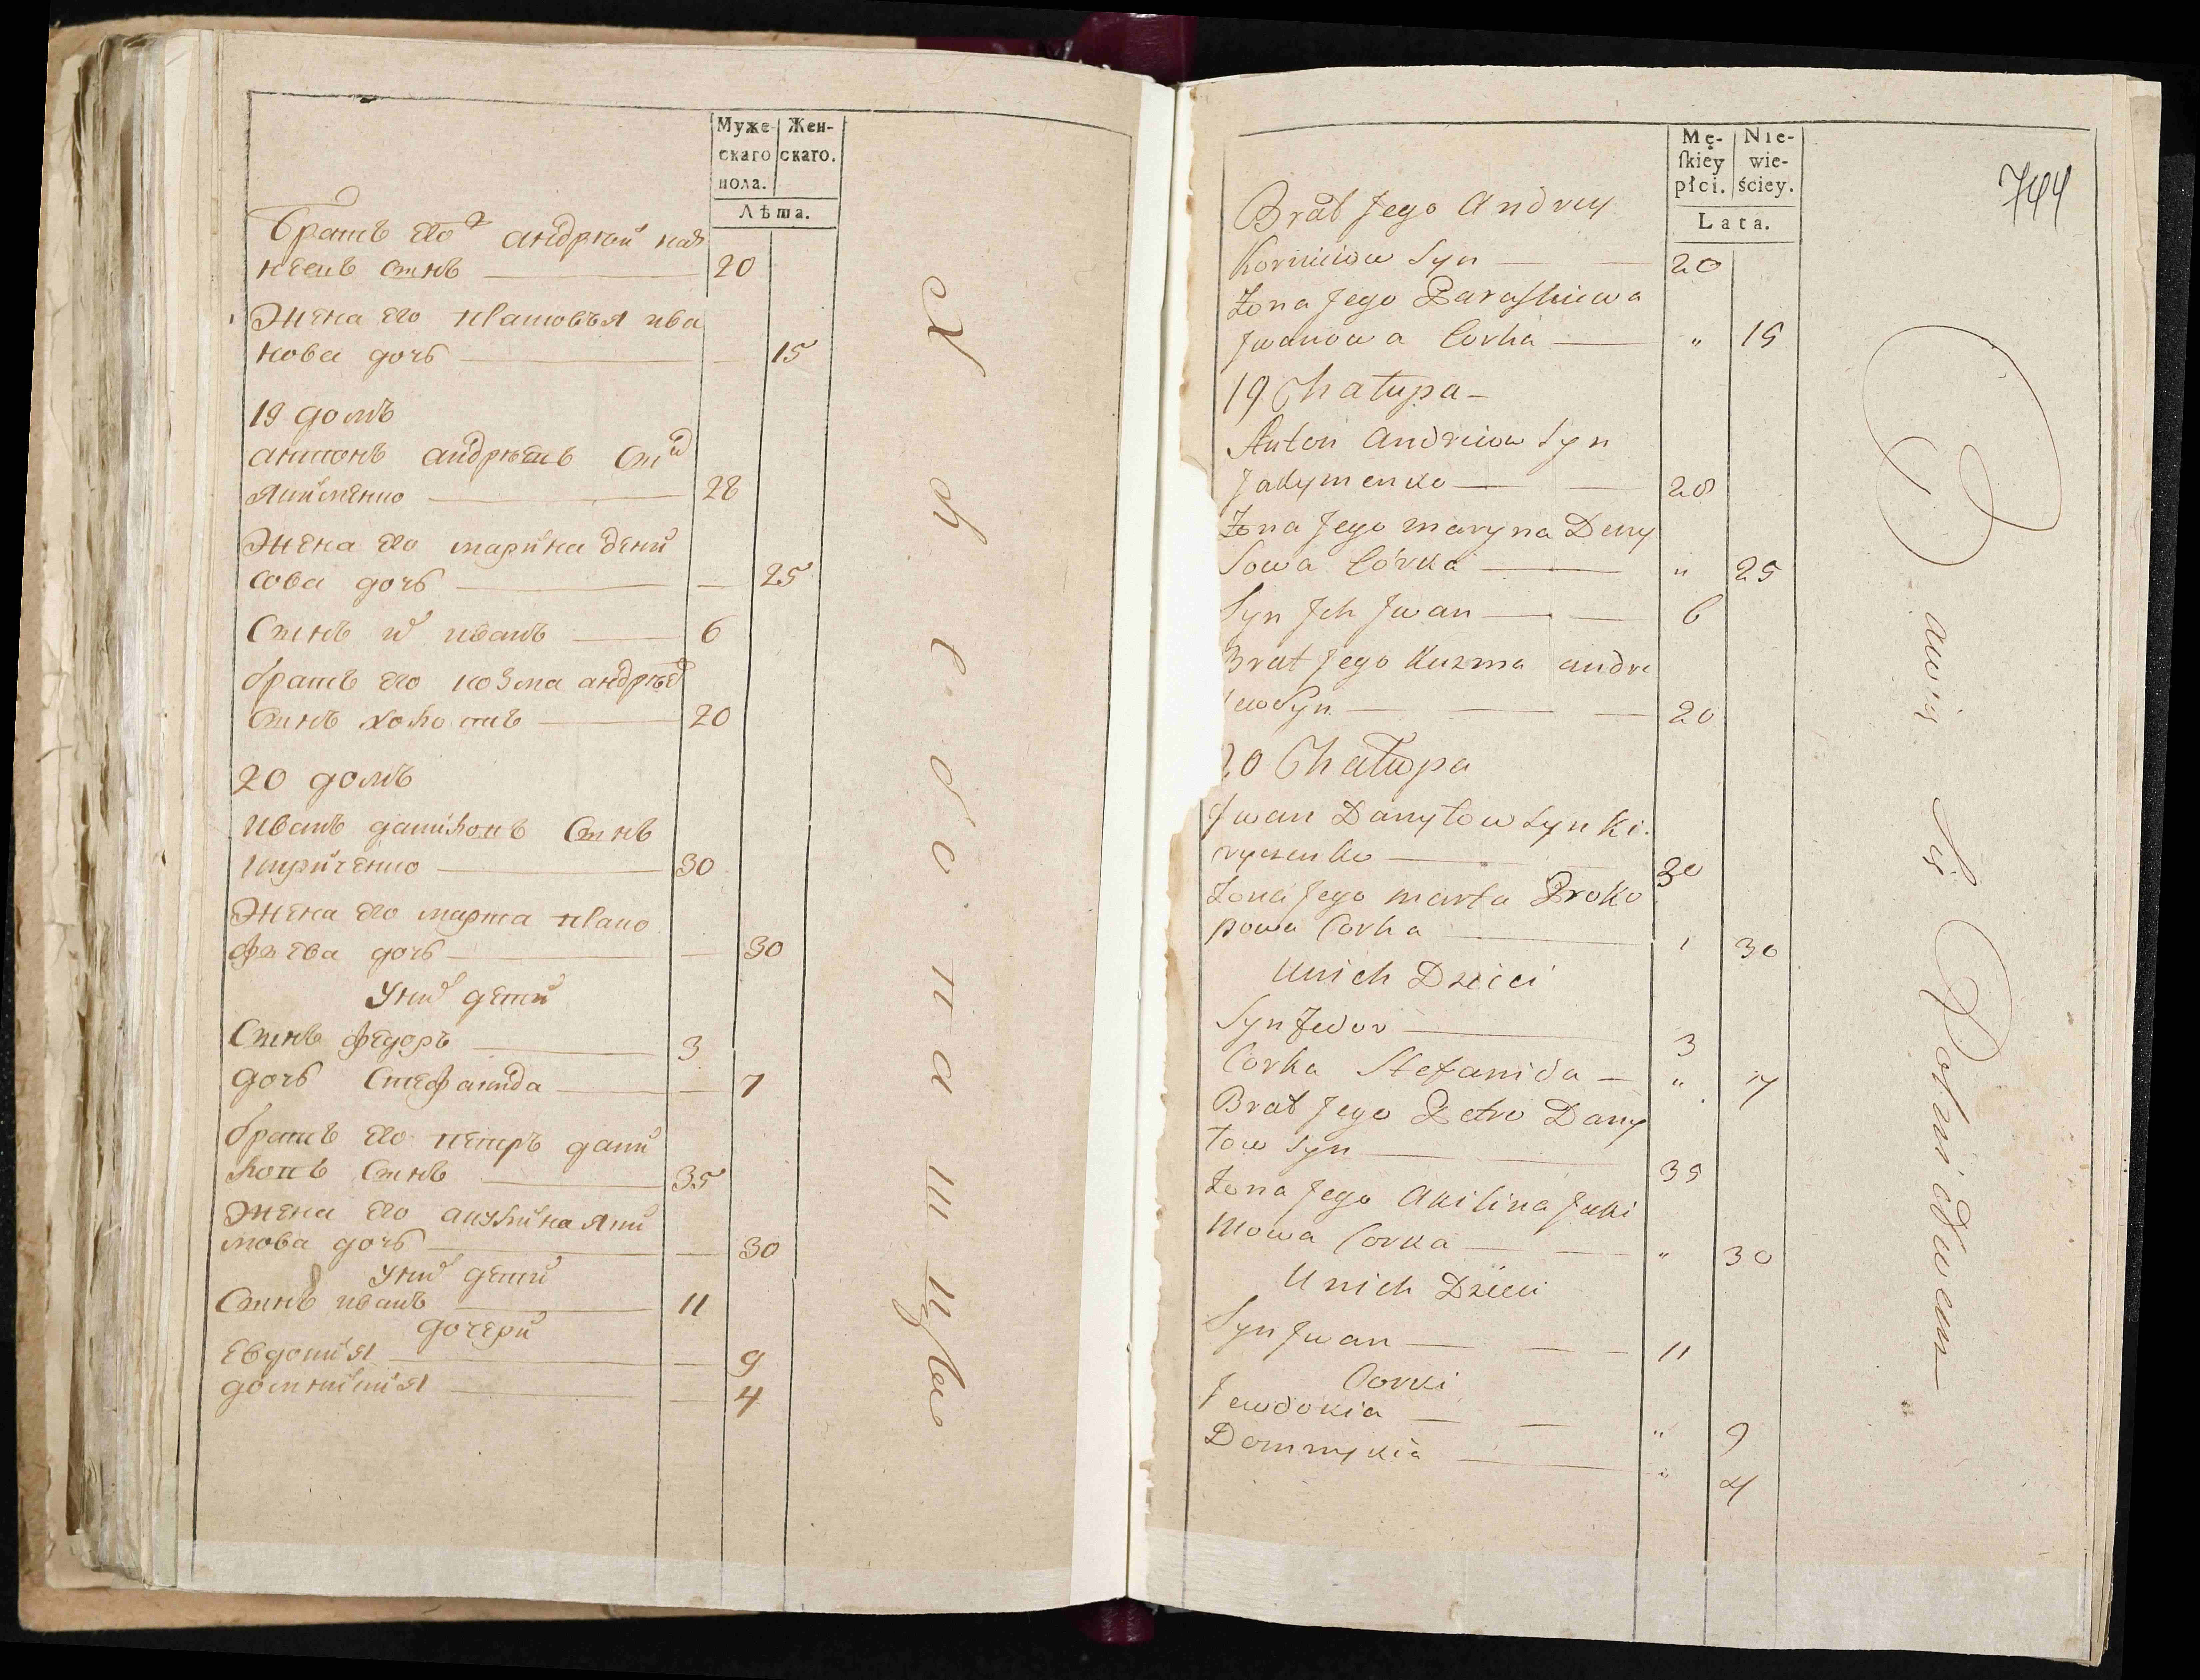 Муже- Жен-
скаго скаго.
пола.
Лѣта.
братъ его андрѣй
нѣевъ сынъ 20
Жена его ива
нова дочъ 15
19 домъ
антонъ андрѣевъ
якименко 28
Жена его марина дени
сова дочъ 25
Сынъ их иванъ 6
братъ его козма андрѣев
сынъ холостъ 20
20 домъ
Иванъ даниловъ Сынъ
кириченко 30
Жена его марта
дочъ 30
У них дети
Сынъ федоръ 3
дочъ Стефанида 7
братъ его петръ дани
ловъ Сынъ 35
Жена его акулина яки
мова дочъ 30
У них дети
Сынъ иванъ 11
дочери
Евдокия 9
домникия 4
Mę- Nie-
ſkiey wie-
płci. ściey.
Lata.
744
Brat Jego Andrey
Kornieiow Syn 20
Żona Jego Paraskiewa
Jwanowa Corka " 15
19 Chałupa
Anton Andreiow Syn
Jakymenko 28
Żona Jego Maryna Deny
sowa Córka " 25
Syn Jch Jwan 6
Brat Jego Kuzma andre
iewSyn 20
20 Chałupa
Jwan Danyłow Syn Ki.
ryczenko 30
Żona Jego Marta Proko
powa Corka 30
U nich Dzieci
Syn Fedor 3
Corka Stefanida " 7
Brat Jego Petro Dany
łow Syn 35
Żona Jego Akilina Jaki
mowa Corka " 30
U nich Dzieci
Syn Jwan 11
Corki
Jewdokia " 9
Domnykia " 4